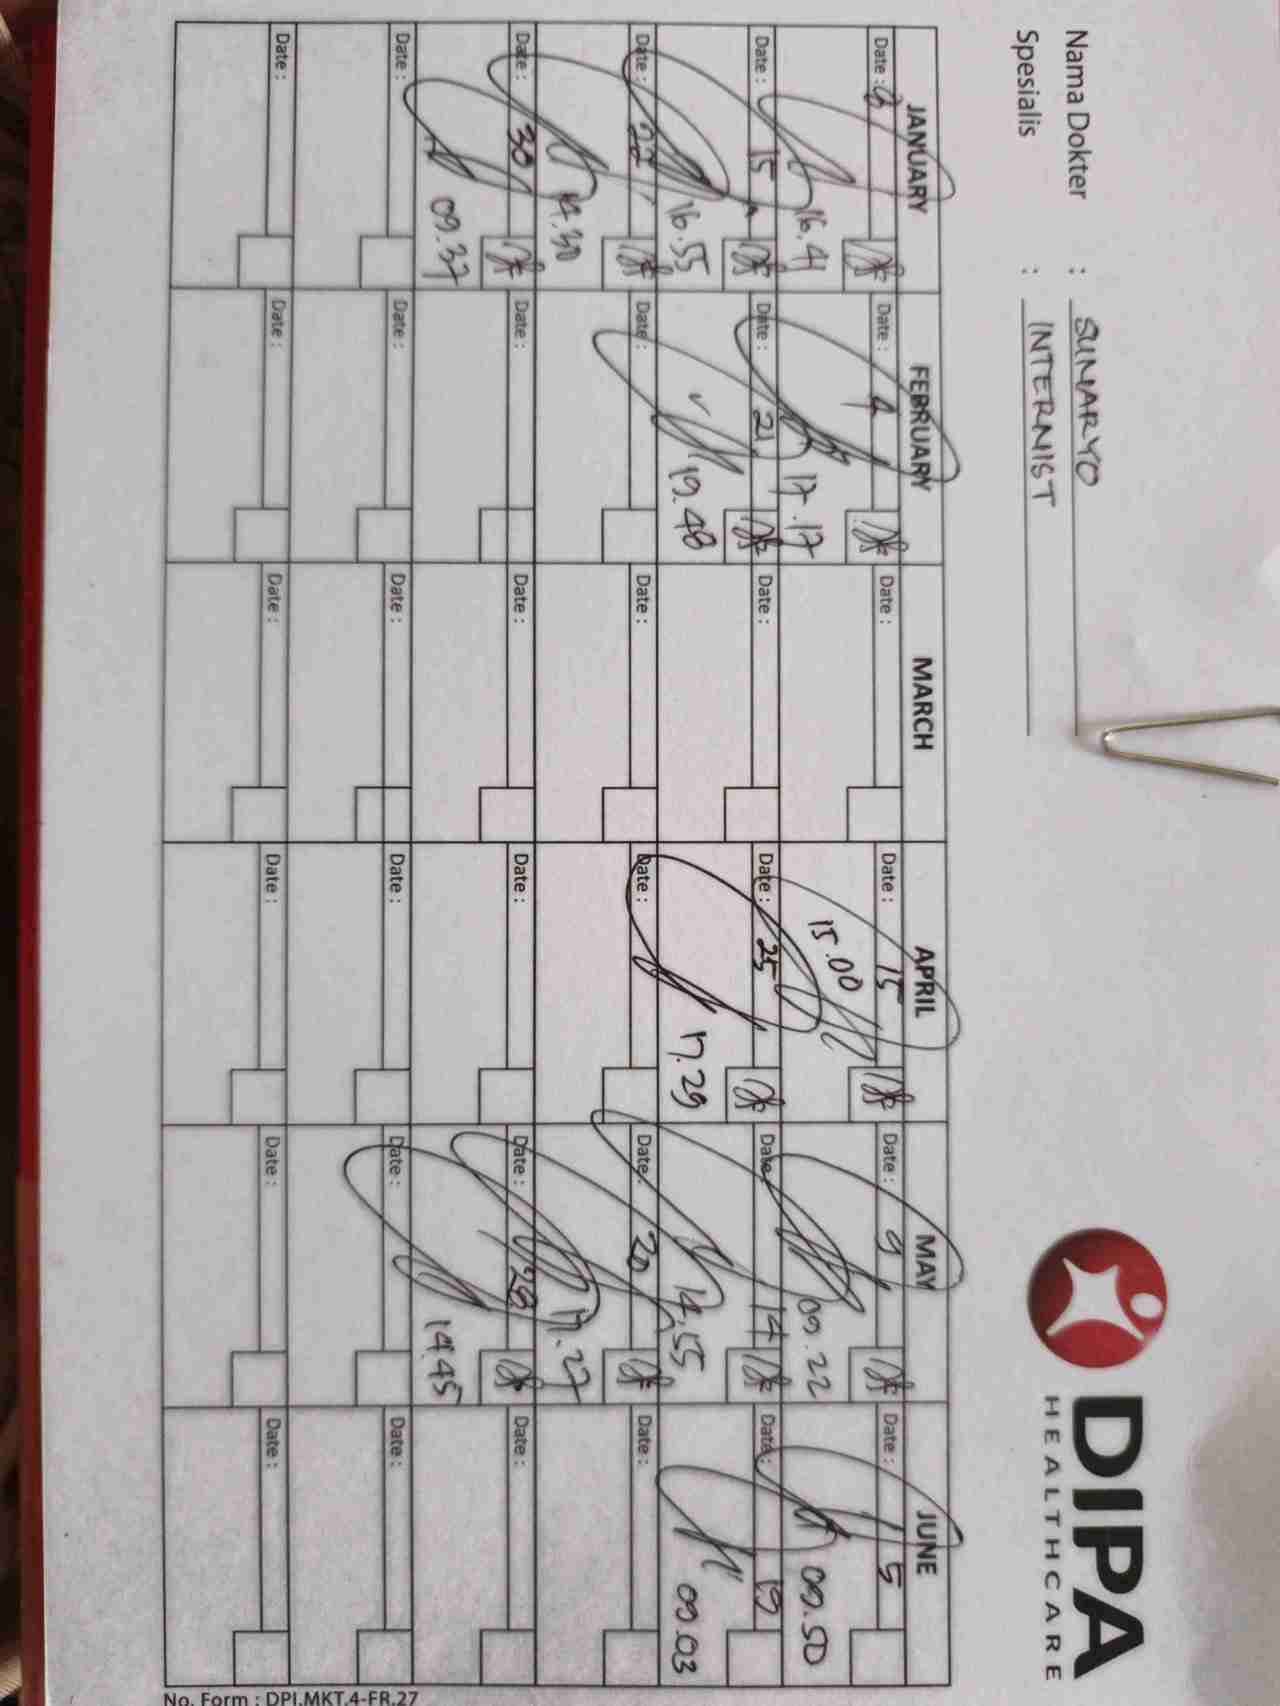 Nama Dokter : SUMARYO
Spesialis : INTERNIST
DIPA
HEALTHCARE
JANUARY FEBRUARY MARCH APRIL MAY JUNE
Date : Date : 4 Date : Date : 15 Date : 9 Date : 5
16.41 17.17 15.00 09.22 09.50
Date : 15 Date : 21 Date : Date : 25 Date : 14 Date : 19
16.55 19.48 17.29 14.55 09.03
Date : 22 Date : Date : Date : Date : 20 Date :
14.30 17.27
Date : 30 Date : Date : Date : Date : 28 Date :
09.37 14.45
Date : Date : Date : Date : Date : Date :
Date : Date : Date : Date : Date : Date :
No. Form : DPI.MKT.4-FR.27